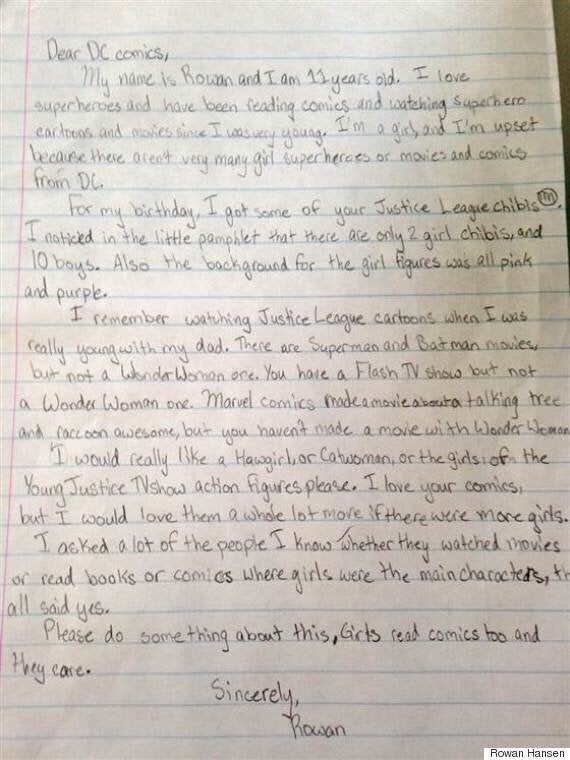 Dear DC comics,
My name is Rowan and I am 11 years old. I love
superheroes and have been reading comics and watching superhero
cartoons and movies since I was very young. I'm a girl, and I'm upset
because there aren't very many girl superheroes or movies and comics
from DC.
For my birthday, I got some of your Justice League chibis™.
I noticed in the little pamphlet that there are only 2 girl chibis, and
10 boys. Also the background for the girl figures was all pink
and purple.
I remember watching Justice League cartoons when I was
really young with my dad. There are Superman and Batman movies,
but not a Wonder Woman one. You have a Flash TV show but not
a Wonder Woman one. Marvel comics made a movie about a talking tree
and raccoon awesome, but you haven't made a movie with Wonder Woman
I would really like a Hawgirl, or Catwoman, or the girls of the
Young Justice TV show action figures please. I love your comics,
but I would love them a whole lot more if there were more girls.
I asked a lot of the people I know whether they watched movies
or read books or comics where girls were the main characters, th
all said yes.
Please do something about this, Girls read comics too and
they care.
Sincerely,
Rowan
Rowan Hansen